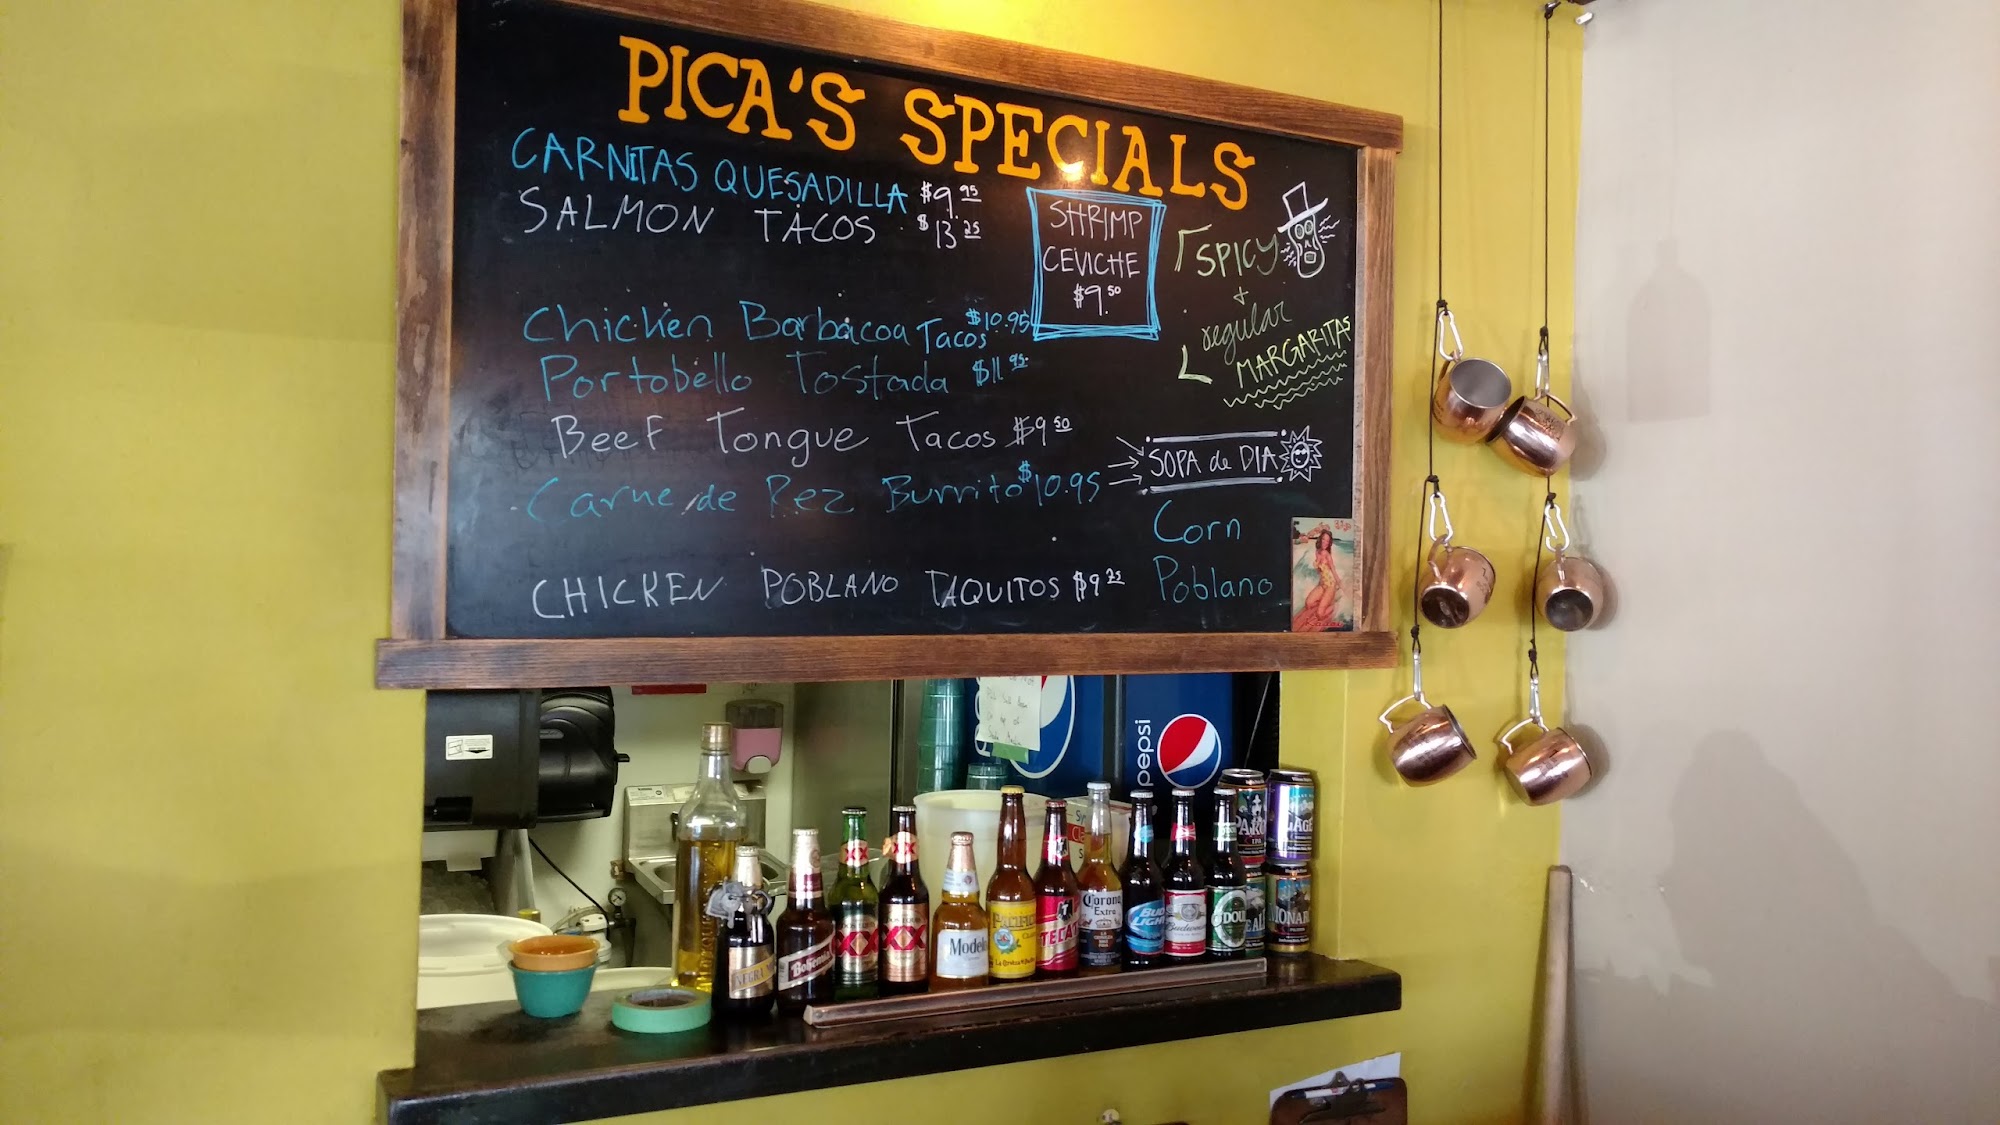 PICA'S SPECIALS
CARNITAS QUESADILLA $9.95
SALMON TACOS $13.25
Chicken Barbacoa Tacos $10.95
Portobello Tostada $11.95
Beef Tongue Tacos $9.50
Carne de Rez Burrito $10.95
CHICKEN POBLANO TAQUITOS $9.25
SHRIMP
CEVICHE
$9.50
SPICY
+
regular
MARGARITAS
SOPA de DIA
Corn
Poblano
pepsi
NEGRA
Bohemia
XX
XX
Modelo
PACIFICO
TECATE
Corona
Extra
BUD
LIGHT
Budweiser
O'DOUL
IPA
LAGER
ALE
MONARCH